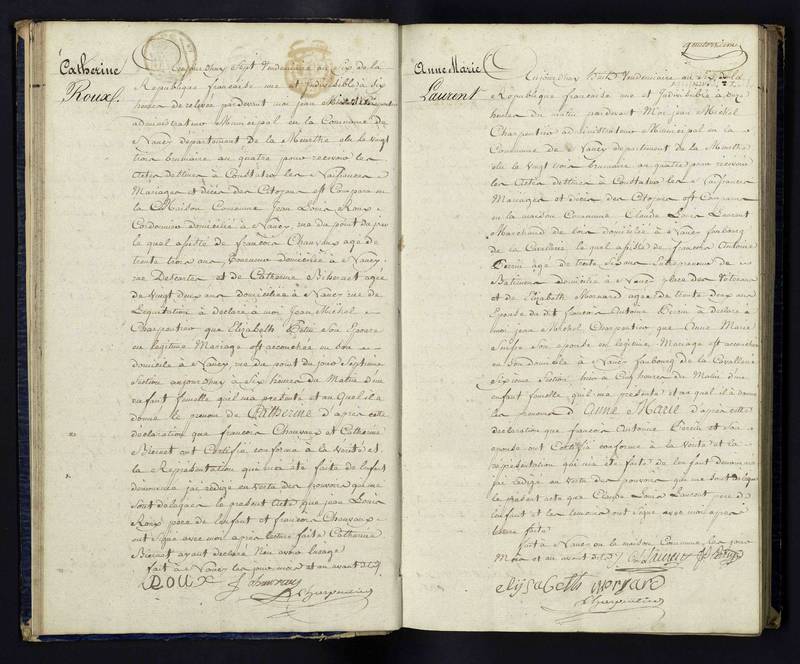 Catherine
Roux
Aujourdhuy Sept Vendemiaire an Six de la
Republique française une et Indivisible à Six
heures de relevée pardevant moi jean Michel
administrateur Municipal en la Commune de
Nancy département de la Meurthe élu le vingt
trois brumaire an quatre pour recevoir les
Actes destinés à Constater les Naissances
Mariages et décès des Citoyens est Comparu en
la Maison Commune Jean Louis Roux
Cordonnier domicilié à Nancy rue du point du jour
lequel assisté de françois Chauvaux agé de
trente trois ans domicilié à Nancy
rue Descartes et de Catherine agée
de vingt deux ans domiciliée à Nancy rue de
Legislation à déclaré à moi Jean Michel
Charpentier que Elizabeth Son Epouse
en legitime Mariage est accouchée en Son
domicile à Nancy rue du point du jour Septieme
Section aujourdhuy à Six heures du Matin d'un
enfant femelle qu'il m'a présenté et auquel il a
donné le prenom de Catherine d'après cette
déclaration que françois Chauvaux et Catherine
ont Certifié conforme à la Vérité et
la Représentation qui m'a été faite de l'enfant
dénommé j'ai rédigé en vertu des pouvoirs qui me
Sont délégués le présent acte que jean Louis
Roux père de l'enfant et françois Chauvaux
ont Signé avec moi après lecture faite Catherine
ayant déclaré n'en avoir l'usage
fait à Nancy les jour mois et an avant dits
Roux f chauvaux
Charpentier
Anne Marie
Laurent
Aujourdhuy huit Vendemiaire an Six de la
Republique française une et Indivisible à onze
heures du matin pardevant Moi jean Michel
Charpentier administrateur Municipal en la
Commune de Nancy département de la Meurthe
élu le vingt trois brumaire an quatre pour recevoir
les Actes destinés à Constater les Naissances
Mariages et décès des Citoyens est Comparu
en la maison Commune Claude Louis Laurent
Marchand de bois domicilié à Nancy faubourg
de la Cavallerie lequel assisté de francois Antoine
agé de trente Six ans Entrepreneur de
Batimens domicilié à Nancy place des Vétérans
et de Elizabeth Mornard agée de trente deux ans
Epouse du dit francois Antoine à déclaré à
moi jean Michel Charpentier que Anne Marie
son épouse en legitime Mariage est accouchée
en Son domicile à Nancy faubourg de la Cavallerie
Sixieme Section hier à Cinq heures du Matin d'une
enfant femelle qu'il m'a présenté et au quel il a donné
les prenoms d'Anne Marie d'après cette
déclaration que francois Antoine et Son
épouse ont Certifié conforme à la Vérité et la
représentation qui m'a été faite de l'enfant dénommé
j'ai rédigé en vertu des pouvoirs qui me sont délégués
le présent acte que Claude Louis Laurent père de
l'enfant et les témoins ont signé avec moi après
lecture faite
fait à Nancy en la maison Commune les jour
Mois et an avant dits Laurent
elisabeth mornard
Charpentier